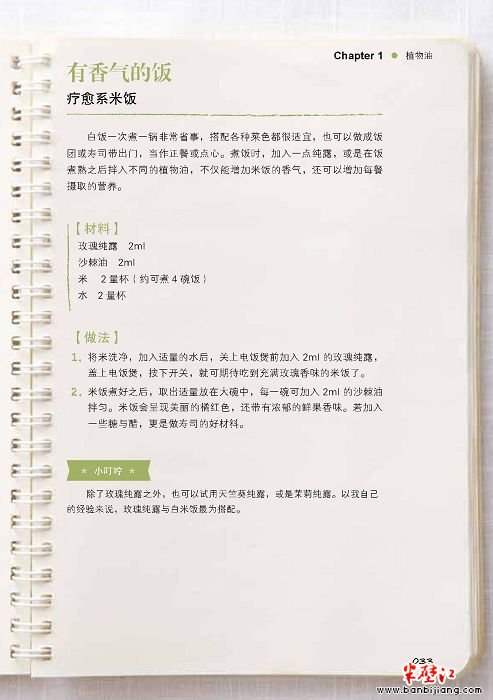 Chapter 1 ● 植物油
有香气的饭
疗愈系米饭
白饭一次煮一锅非常省事，搭配各种菜色都很适宜，也可以做成饭
团或寿司带出门，当作正餐或点心。煮饭时，加入一点纯露，或是在饭
煮熟之后拌入不同的植物油，不仅能增加米饭的香气，还可以增加每餐
摄取的营养。
【材料】
玫瑰纯露 2ml
沙棘油 2ml
米 2量杯（约可煮4碗饭）
水 2量杯
【做法】
1. 将米洗净，加入适量的水后，关上电饭煲前加入2ml的玫瑰纯露，
盖上电饭煲，按下开关，就可期待吃到充满玫瑰香味的米饭了。
2. 米饭煮好之后，取出适量放在大碗中，每一碗可加入2ml的沙棘油
拌匀。米饭会呈现美丽的橘红色，还带有浓郁的鲜果香味。若加入
一些糖与醋，更是做寿司的好材料。
* 小叮咛 *
除了玫瑰纯露之外，也可以试用天竺葵纯露，或是茉莉纯露。以我自己
的经验来说，玫瑰纯露与白米饭最为搭配。
033
半壁江
www.banbijiang.com